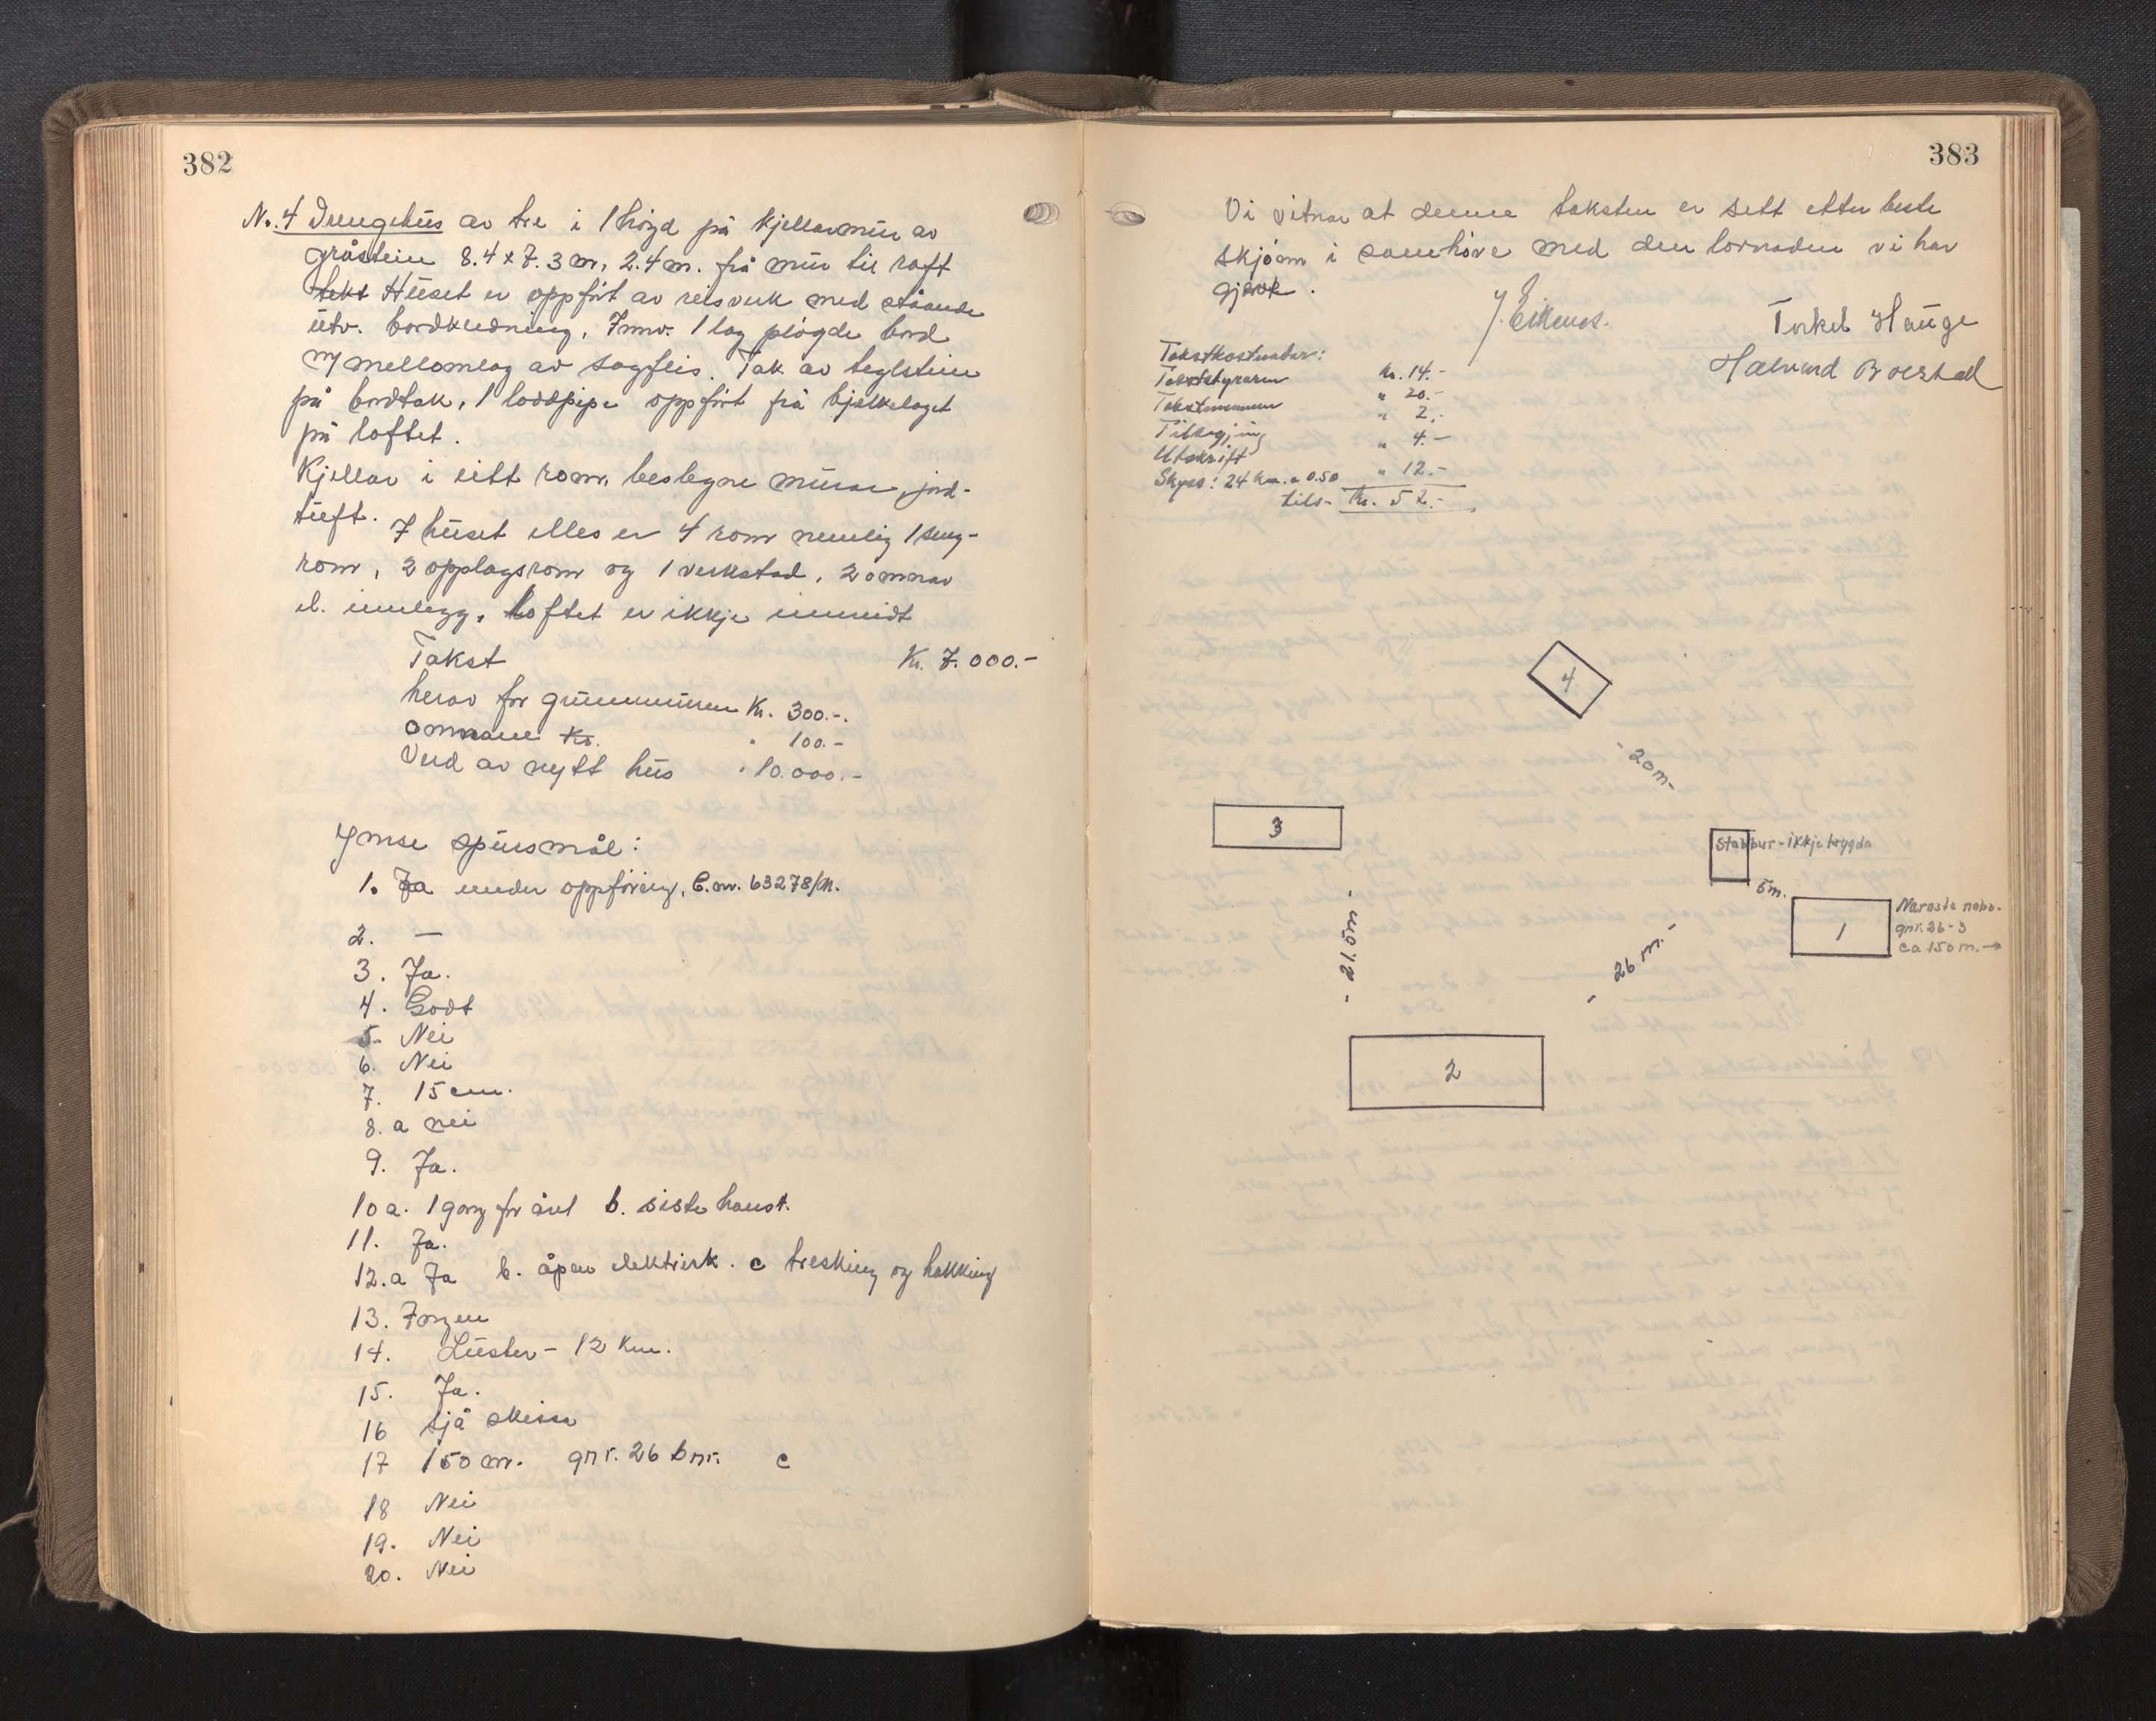 382
No. 4 Drengehus av tre i 1 högd på kjellarmur av
gråstein 8.4 x 7.3 m, 2.4 m. frå mur til raft
Huset er oppfört av reisverk med ståande
utv. bordkledning, Innv. 1 lag plögde bord
m/ mellomlag av sagflis. Tak av teglstein
på bordtak, 1 loddpipe oppfört frå bjelkelaget
på loftet.
Kjellar i eitt rom, murar, jord-
tuft.
I huset elles er 4 rom nemlig 1 seng-
rom, 2 opplagsrom og 1 verkstad, 2 omnar
el. innlegg, Loftet er ikkje innreidt
Takst Kr. 7.000.-
herav for grunnmuren Kr. 300.-.
omnane Kr. " 100.-
Verd av nytt hus " 10.000.-
Ymse spursmål:
1. Ja under oppföring, C.nr. 63278/M.
2. —
3. Ja.
4. Godt
5. Nei
6. Nei
7. 15 cm.
8. a nei
9. Ja.
10 a. 1 gong for året b. siste haust.
11. Ja.
12. a Ja b. åpen elektrisk. c tresking og hakking
13. Ingen
14. Luster - 12 km.
15. Ja.
16 sjå skissa
17 150 m. gnr. 26 bnr. c
18 Nei
19. Nei
20. Nei
383
Vi vitnar at denne taksten er sett etter beste
skjön i samhöve med den lovnaden vi har
gjevet.
J. Eikenes.
Torkel Hauge
Halvard Bolstad
Takstkostnadar:
Takststyraren Kr. 14.-
Takstmennene " 20.-
Tilsegjing " 2.-
Utskrift " 4.-
Skyss: 24 km. a 0.50 " 12.-
tils- Kr. 52.-
4
- 20 m -
3
Stabbur - ikkje trygda
5 m.
1
Naraste nabo-
gnr. 26-3
ca 150 m. →
- 21.5m -
- 26 m. -
2